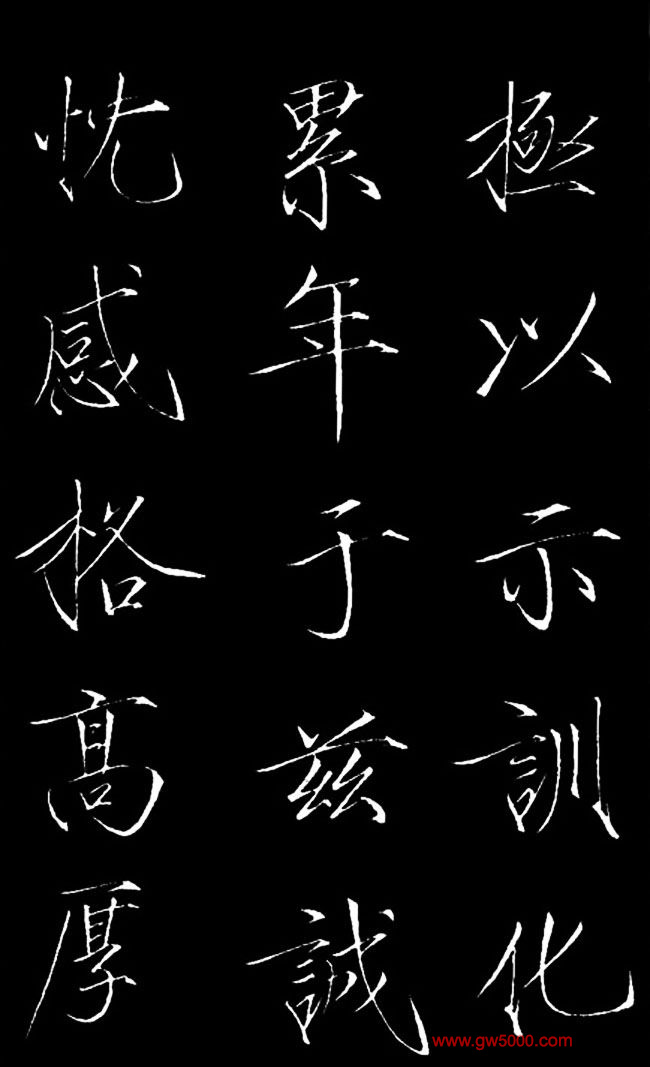 極以示訓化
累年于兹誠
忱感格高厚
www.gw5000.com